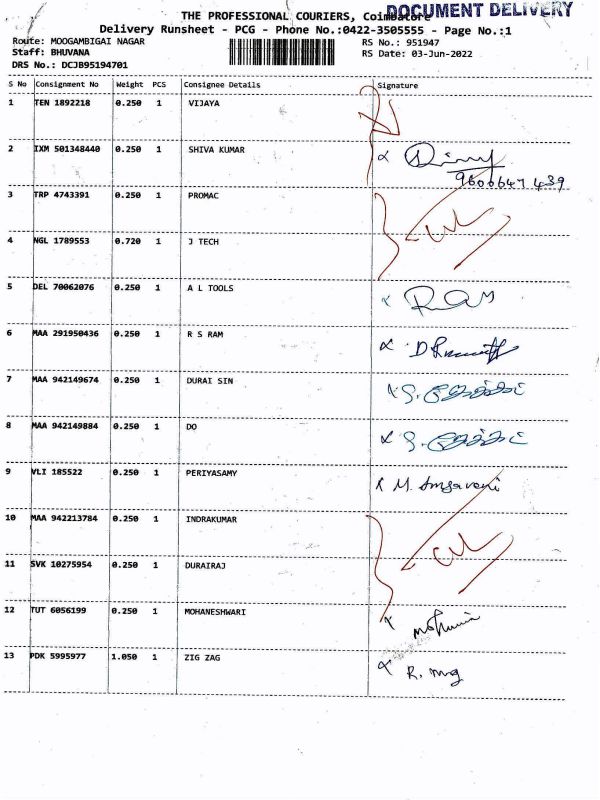 DOCUMENT DELIVERY
THE PROFESSIONAL COURIERS, Coimbatore
Delivery Runsheet - PCG - Phone No.:0422-3505555 - Page No.:1
Route: MOOGAMBIGAI NAGAR RS No.: 951947
Staff: BHUVANA RS Date: 03-Jun-2022
DRS No.: DCJB95194701
S No Consignment No Weight PCS Consignee Details Signature
1 TEN 1892218 0.250 1 VIJAYA
2 IXM 501348440 0.250 1 SHIVA KUMAR
3 TRP 4743391 0.250 1 PROMAC
4 NGL 1789553 0.720 1 J TECH
5 DEL 70062076 0.250 1 A L TOOLS
6 MAA 291950436 0.250 1 R S RAM
7 MAA 942149674 0.250 1 DURAI SIN
8 MAA 942149884 0.250 1 DO
9 VLI 185522 0.250 1 PERIYASAMY
10 MAA 942213784 0.250 1 INDRAKUMAR
11 SVK 10275954 0.250 1 DURAIRAJ
12 TUT 6056199 0.250 1 MOHANESHWARI
13 PDK 5995977 1.050 1 ZIG ZAG